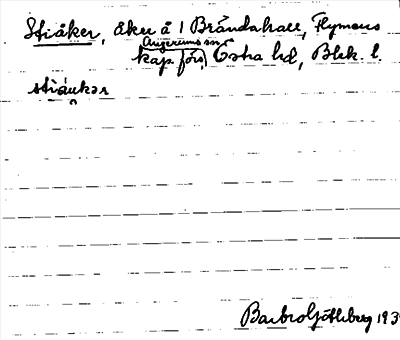 Stiåker, åker å 1 Brändahall, Flymens
Augerums sn
kap förs, Östra hd, Blek. l.
stiåukər
Barbro Götlberg 193